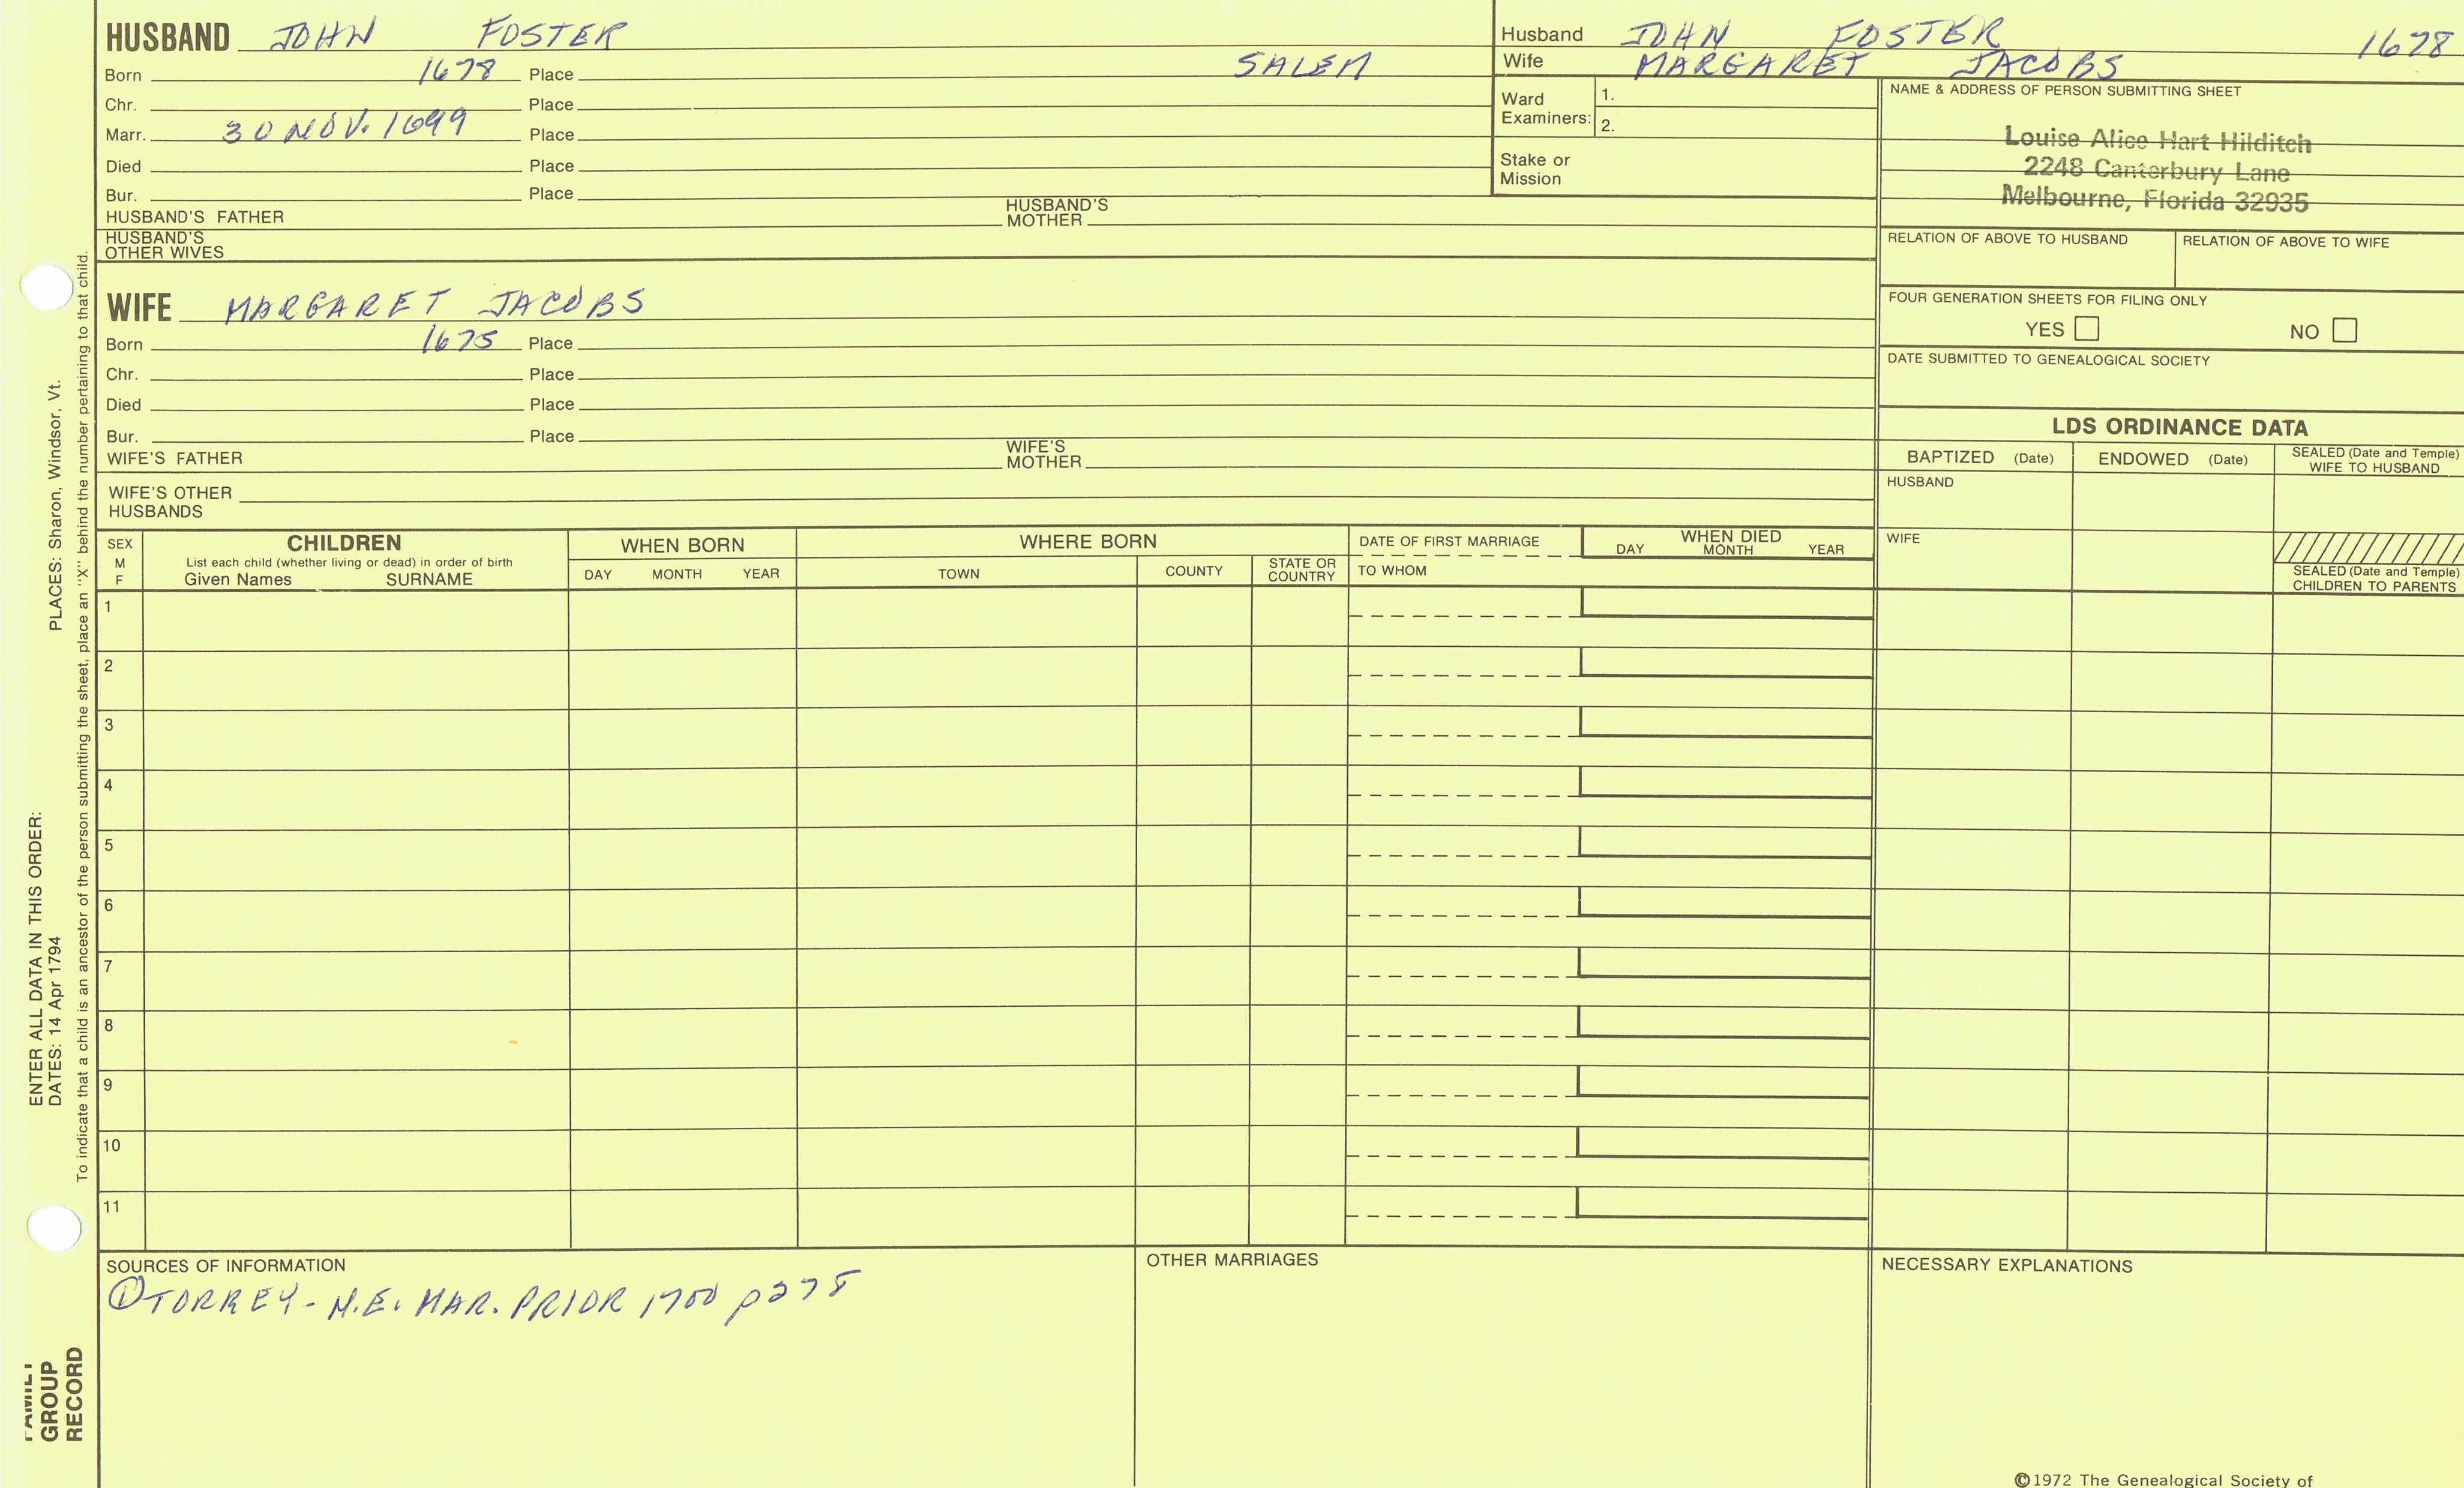 HUSBAND JOHN FOSTER
Born 1678 Place SALEM
Chr. Place
Marr. 30 NOV. 1699 Place
Died Place
Bur. Place
HUSBAND'S FATHER HUSBAND'S MOTHER
HUSBAND'S OTHER WIVES
Husband JOHN FOSTER 1678
Wife MARGARET JACOBS
Ward Examiners: 1.
2.
Stake or Mission
NAME & ADDRESS OF PERSON SUBMITTING SHEET
Louise Alice Hart Hilditch
2248 Canterbury Lane
Melbourne, Florida 32935
RELATION OF ABOVE TO HUSBAND RELATION OF ABOVE TO WIFE
FOUR GENERATION SHEETS FOR FILING ONLY
YES NO
DATE SUBMITTED TO GENEALOGICAL SOCIETY
WIFE MARGARET JACOBS
Born 1675 Place
Chr. Place
Died Place
Bur. Place
WIFE'S FATHER WIFE'S MOTHER
WIFE'S OTHER HUSBANDS
LDS ORDINANCE DATA
BAPTIZED (Date) ENDOWED (Date) SEALED (Date and Temple) WIFE TO HUSBAND
HUSBAND
WIFE
SEALED (Date and Temple) CHILDREN TO PARENTS
SEX M F
CHILDREN
List each child (whether living or dead) in order of birth
Given Names SURNAME
WHEN BORN
DAY MONTH YEAR
WHERE BORN
TOWN COUNTY STATE OR COUNTRY
DATE OF FIRST MARRIAGE
TO WHOM
WHEN DIED
DAY MONTH YEAR
1
2
3
4
5
6
7
8
9
10
11
SOURCES OF INFORMATION
① TORREY - N.E. MAR. PRIOR 1700 p278
OTHER MARRIAGES
NECESSARY EXPLANATIONS
©1972 The Genealogical Society of
ENTER ALL DATA IN THIS ORDER:
DATES: 14 Apr 1794 PLACES: Sharon, Windsor, Vt.
To indicate that a child is an ancestor of the person submitting the sheet, place an "X" behind the number pertaining to that child.
FAMILY
GROUP
RECORD